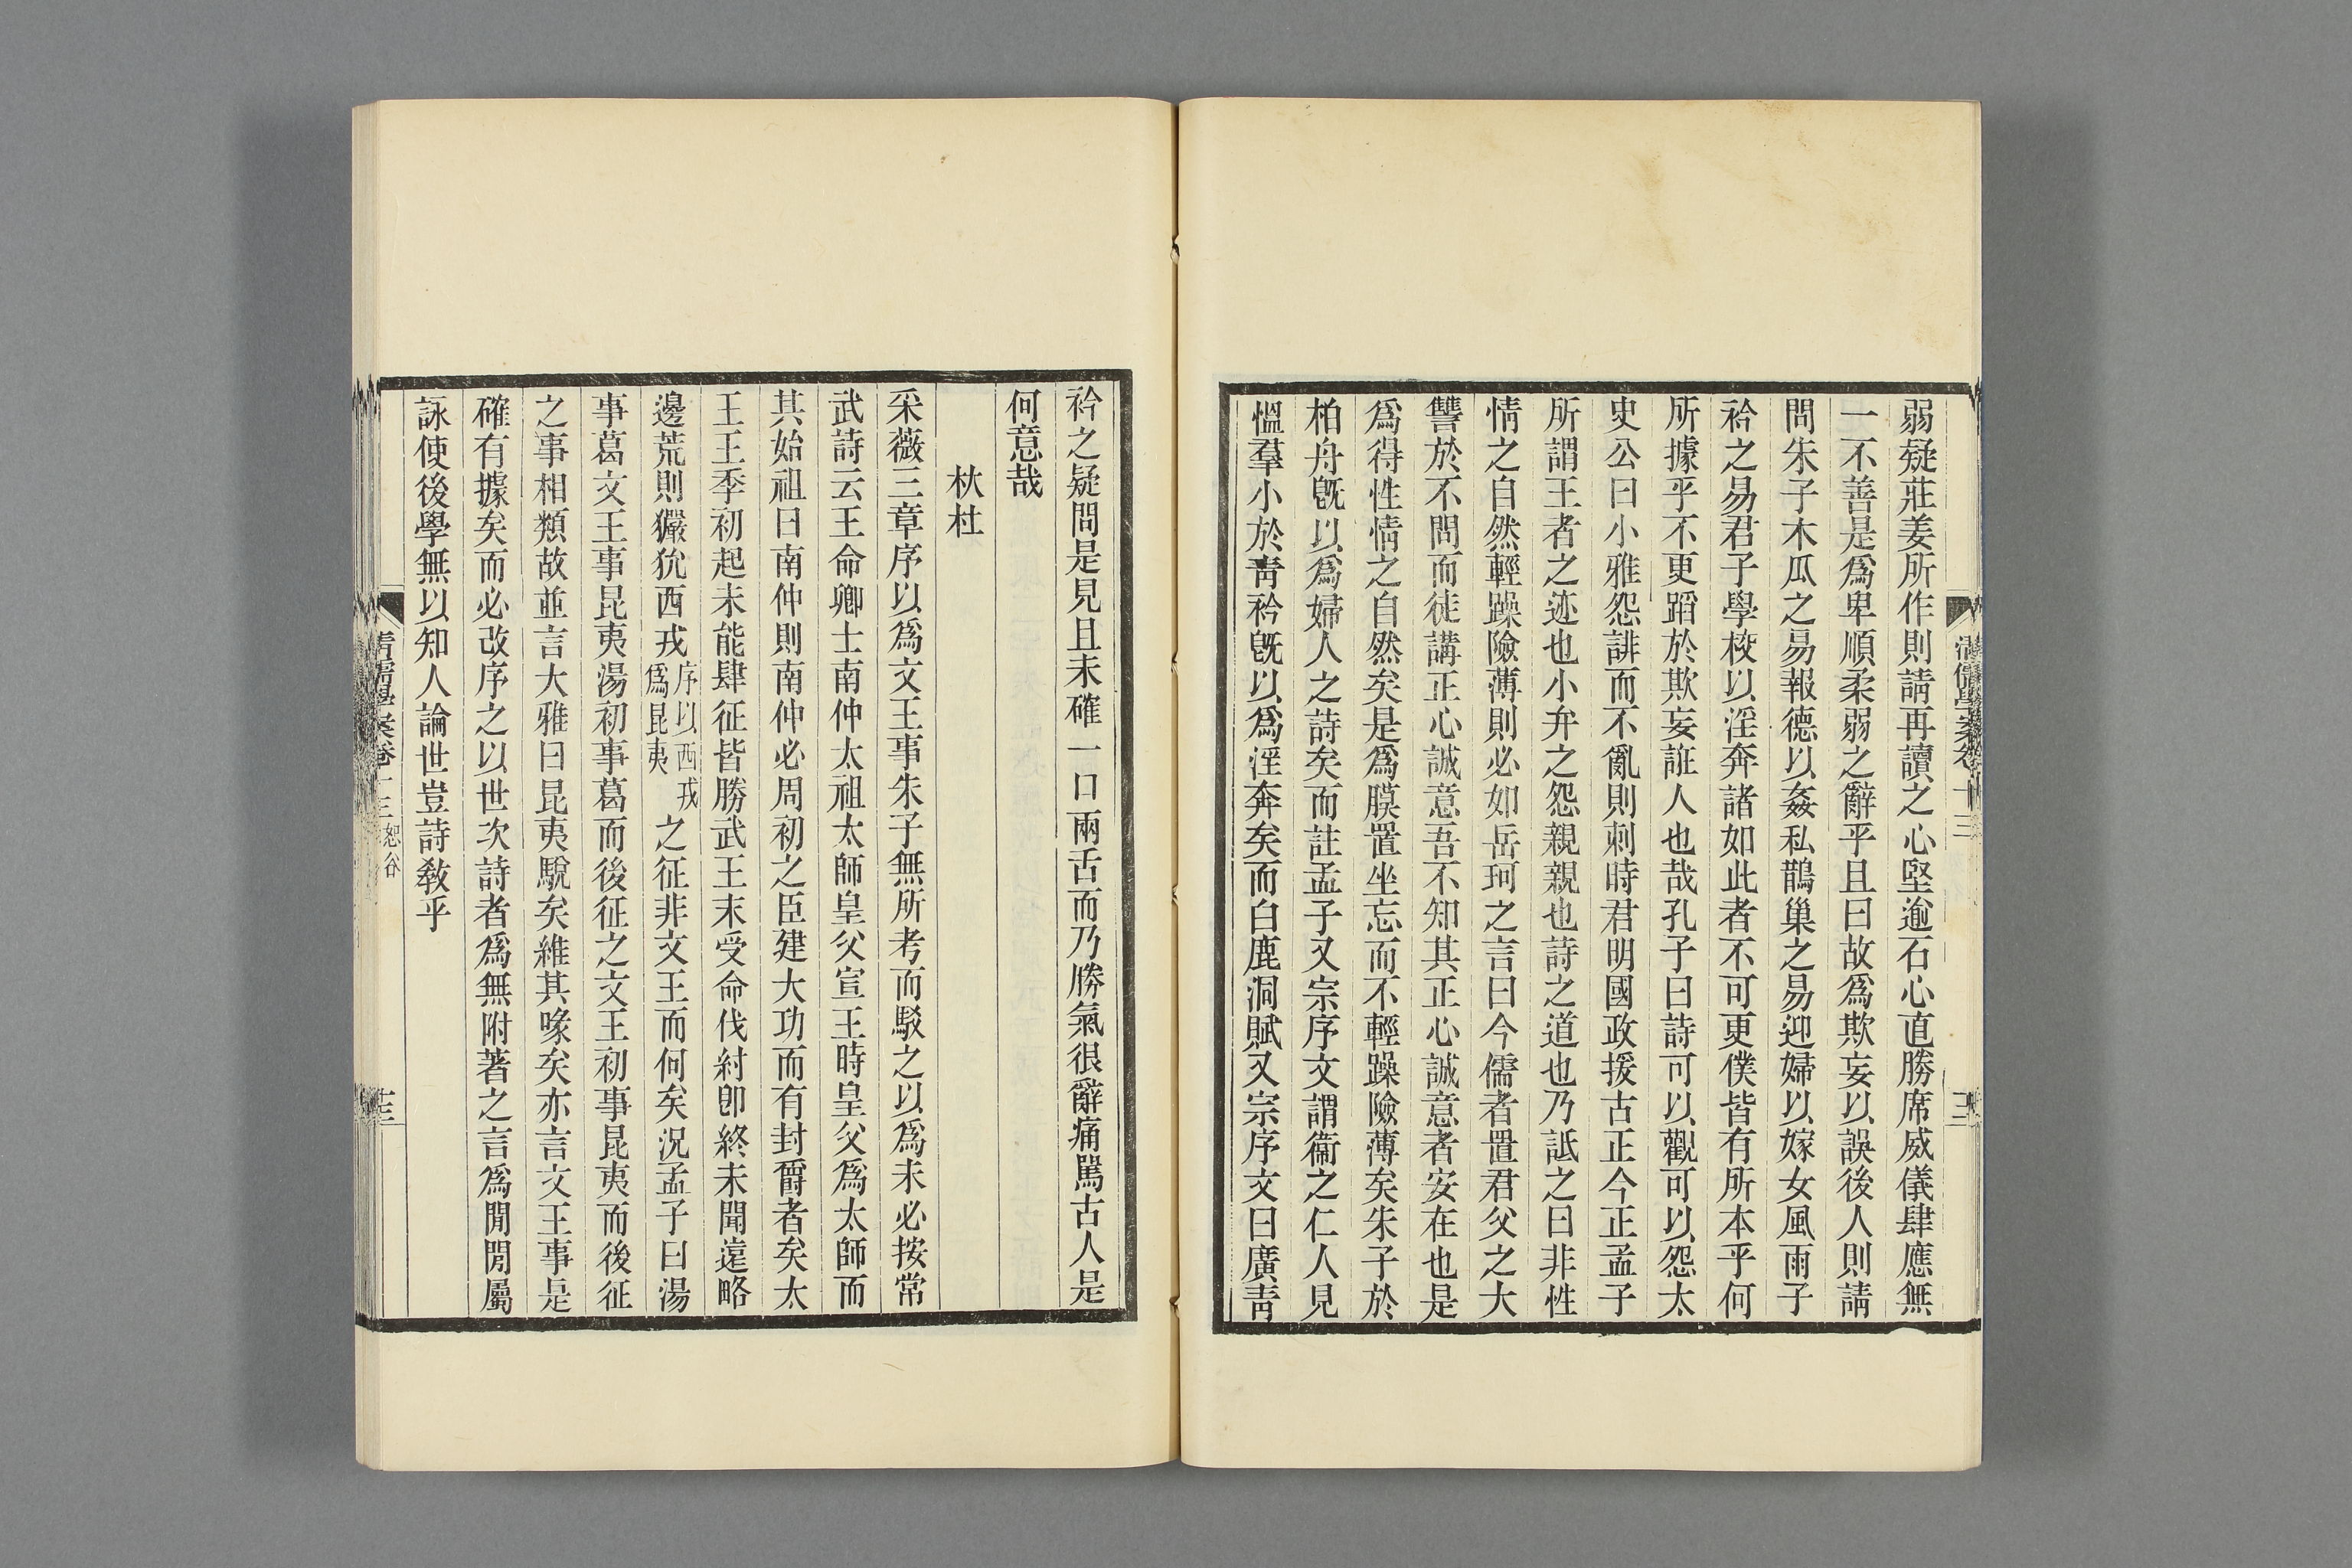 弱疑莊姜所作則請再讀之心堅逾石心直勝席威儀肆應無
一不善是爲卑順柔弱之辭乎且曰故爲欺妄以誤後人則請
問朱子木瓜之易報德以姦私鵲巢之易迎婦以嫁女風雨子
衿之易君子學校以淫奔諸如此者不可更僕皆有所本乎何
所據乎不更蹈於欺妄誑人也哉孔子曰詩可以觀可以怨太
史公曰小雅怨誹而不亂則刺時君明國政援古正今正孟子
所謂王者之迹也小弁之怨親親也詩之道也乃詆之曰非性
情之自然輕躁險薄則必如岳珂之言曰今儒者置君父之大
讐於不問而徒講正心誠意吾不知其正心誠意者安在也是
爲得性情之自然矣是爲膜置坐忘而不輕躁險薄矣朱子於
柏舟旣以爲婦人之詩矣而註孟子又宗序文謂衞之仁人見
慍羣小於青衿旣以爲淫奔矣而白鹿洞賦又宗序文曰廣青
衿之疑問是見且未確一口兩舌而乃勝氣很辭痛罵古人是
何意哉
杕杜
采薇三章序以爲文王事朱子無所考而駁之以爲未必按常
武詩云王命卿士南仲太祖太師皇父宣王時皇父爲太師而
其始祖曰南仲則南仲必周初之臣建大功而有封爵者矣太
王王季初起未能肆征皆勝武王末受命伐紂卽終未聞遠略
邊荒則玁狁西戎序以西戎爲昆夷之征非文王而何矣況孟子曰湯
事葛文王事昆夷湯初事葛而後征之文王初事昆夷而後征
之事相類故並言大雅曰昆夷駾矣維其喙矣亦言文王事是
確有據矣而必改序之以世次詩者爲無附著之言爲閒閒屬
詠使後學無以知人論世豈詩敎乎
清儒學案卷十三 恕谷
十三